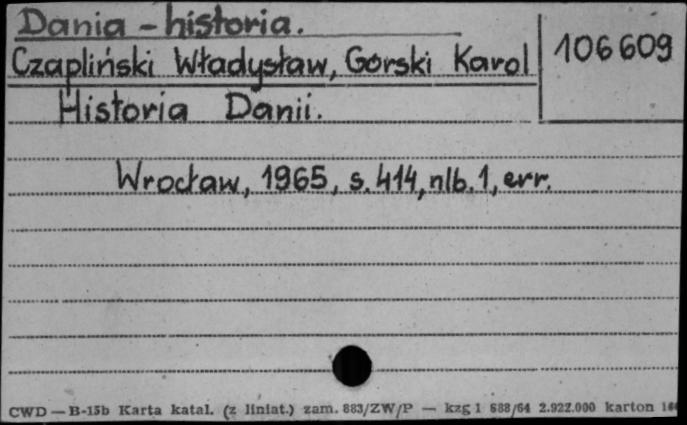 Dania – historia.
Czapliński Władysław, Górski Karol
106609
Historia Danii.
Wrocław, 1965, s. 414, nlb. 1, err.
CWD — B-15b Karta katal. (z liniat.) zam. 883/ZW/P — kzg 1 688/64 2.922.000 karton